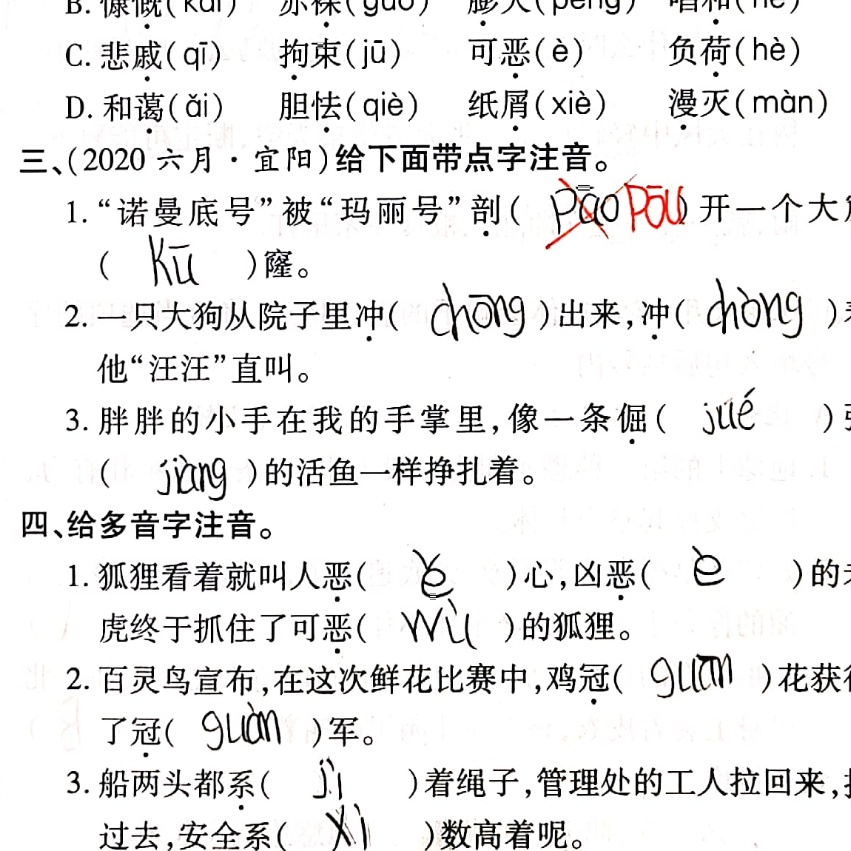 B. 慷慨(kǎi) 赤裸(guǒ) 膨大(péng) 唱和(hè)
C. 悲戚(qī) 拘束(jū) 可恶(è) 负荷(hè)
D. 和蔼(ǎi) 胆怯(qiè) 纸屑(xiè) 漫灭(màn)
三、(2020 六月·宜阳)给下面带点字注音。
1. “诺曼底号”被“玛丽号”剖( pāo pōu )开一个大
( kū )窿。
2. 一只大狗从院子里冲( chōng )出来,冲( chòng )
他“汪汪”直叫。
3. 胖胖的小手在我的手掌里,像一条倔( jué )
( jiàng )的活鱼一样挣扎着。
四、给多音字注音。
1. 狐狸看着就叫人恶( ě )心,凶恶( è )的
虎终于抓住了可恶( wù )的狐狸。
2. 百灵鸟宣布,在这次鲜花比赛中,鸡冠( guān )花获
了冠( guàn )军。
3. 船两头都系( jì )着绳子,管理处的工人拉回来,
过去,安全系( xì )数高着呢。